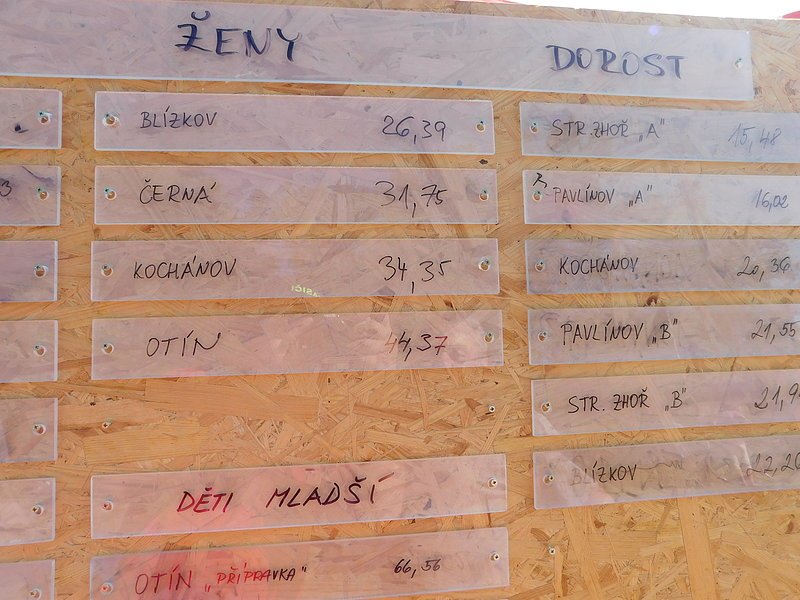 ŽENY
BLÍZKOV 26,39
ČERNÁ 31,75
KOCHÁNOV 34,35
OTÍN 44,37
DĚTI MLADŠÍ
OTÍN „PŘÍPRAVKA" 66,56
DOROST
STR. ZHOŘ „A" 15,48
PAVLÍNOV „A" 16,02
KOCHÁNOV 20,36
PAVLÍNOV „B" 21,55
STR. ZHOŘ „B"
BLÍZKOV